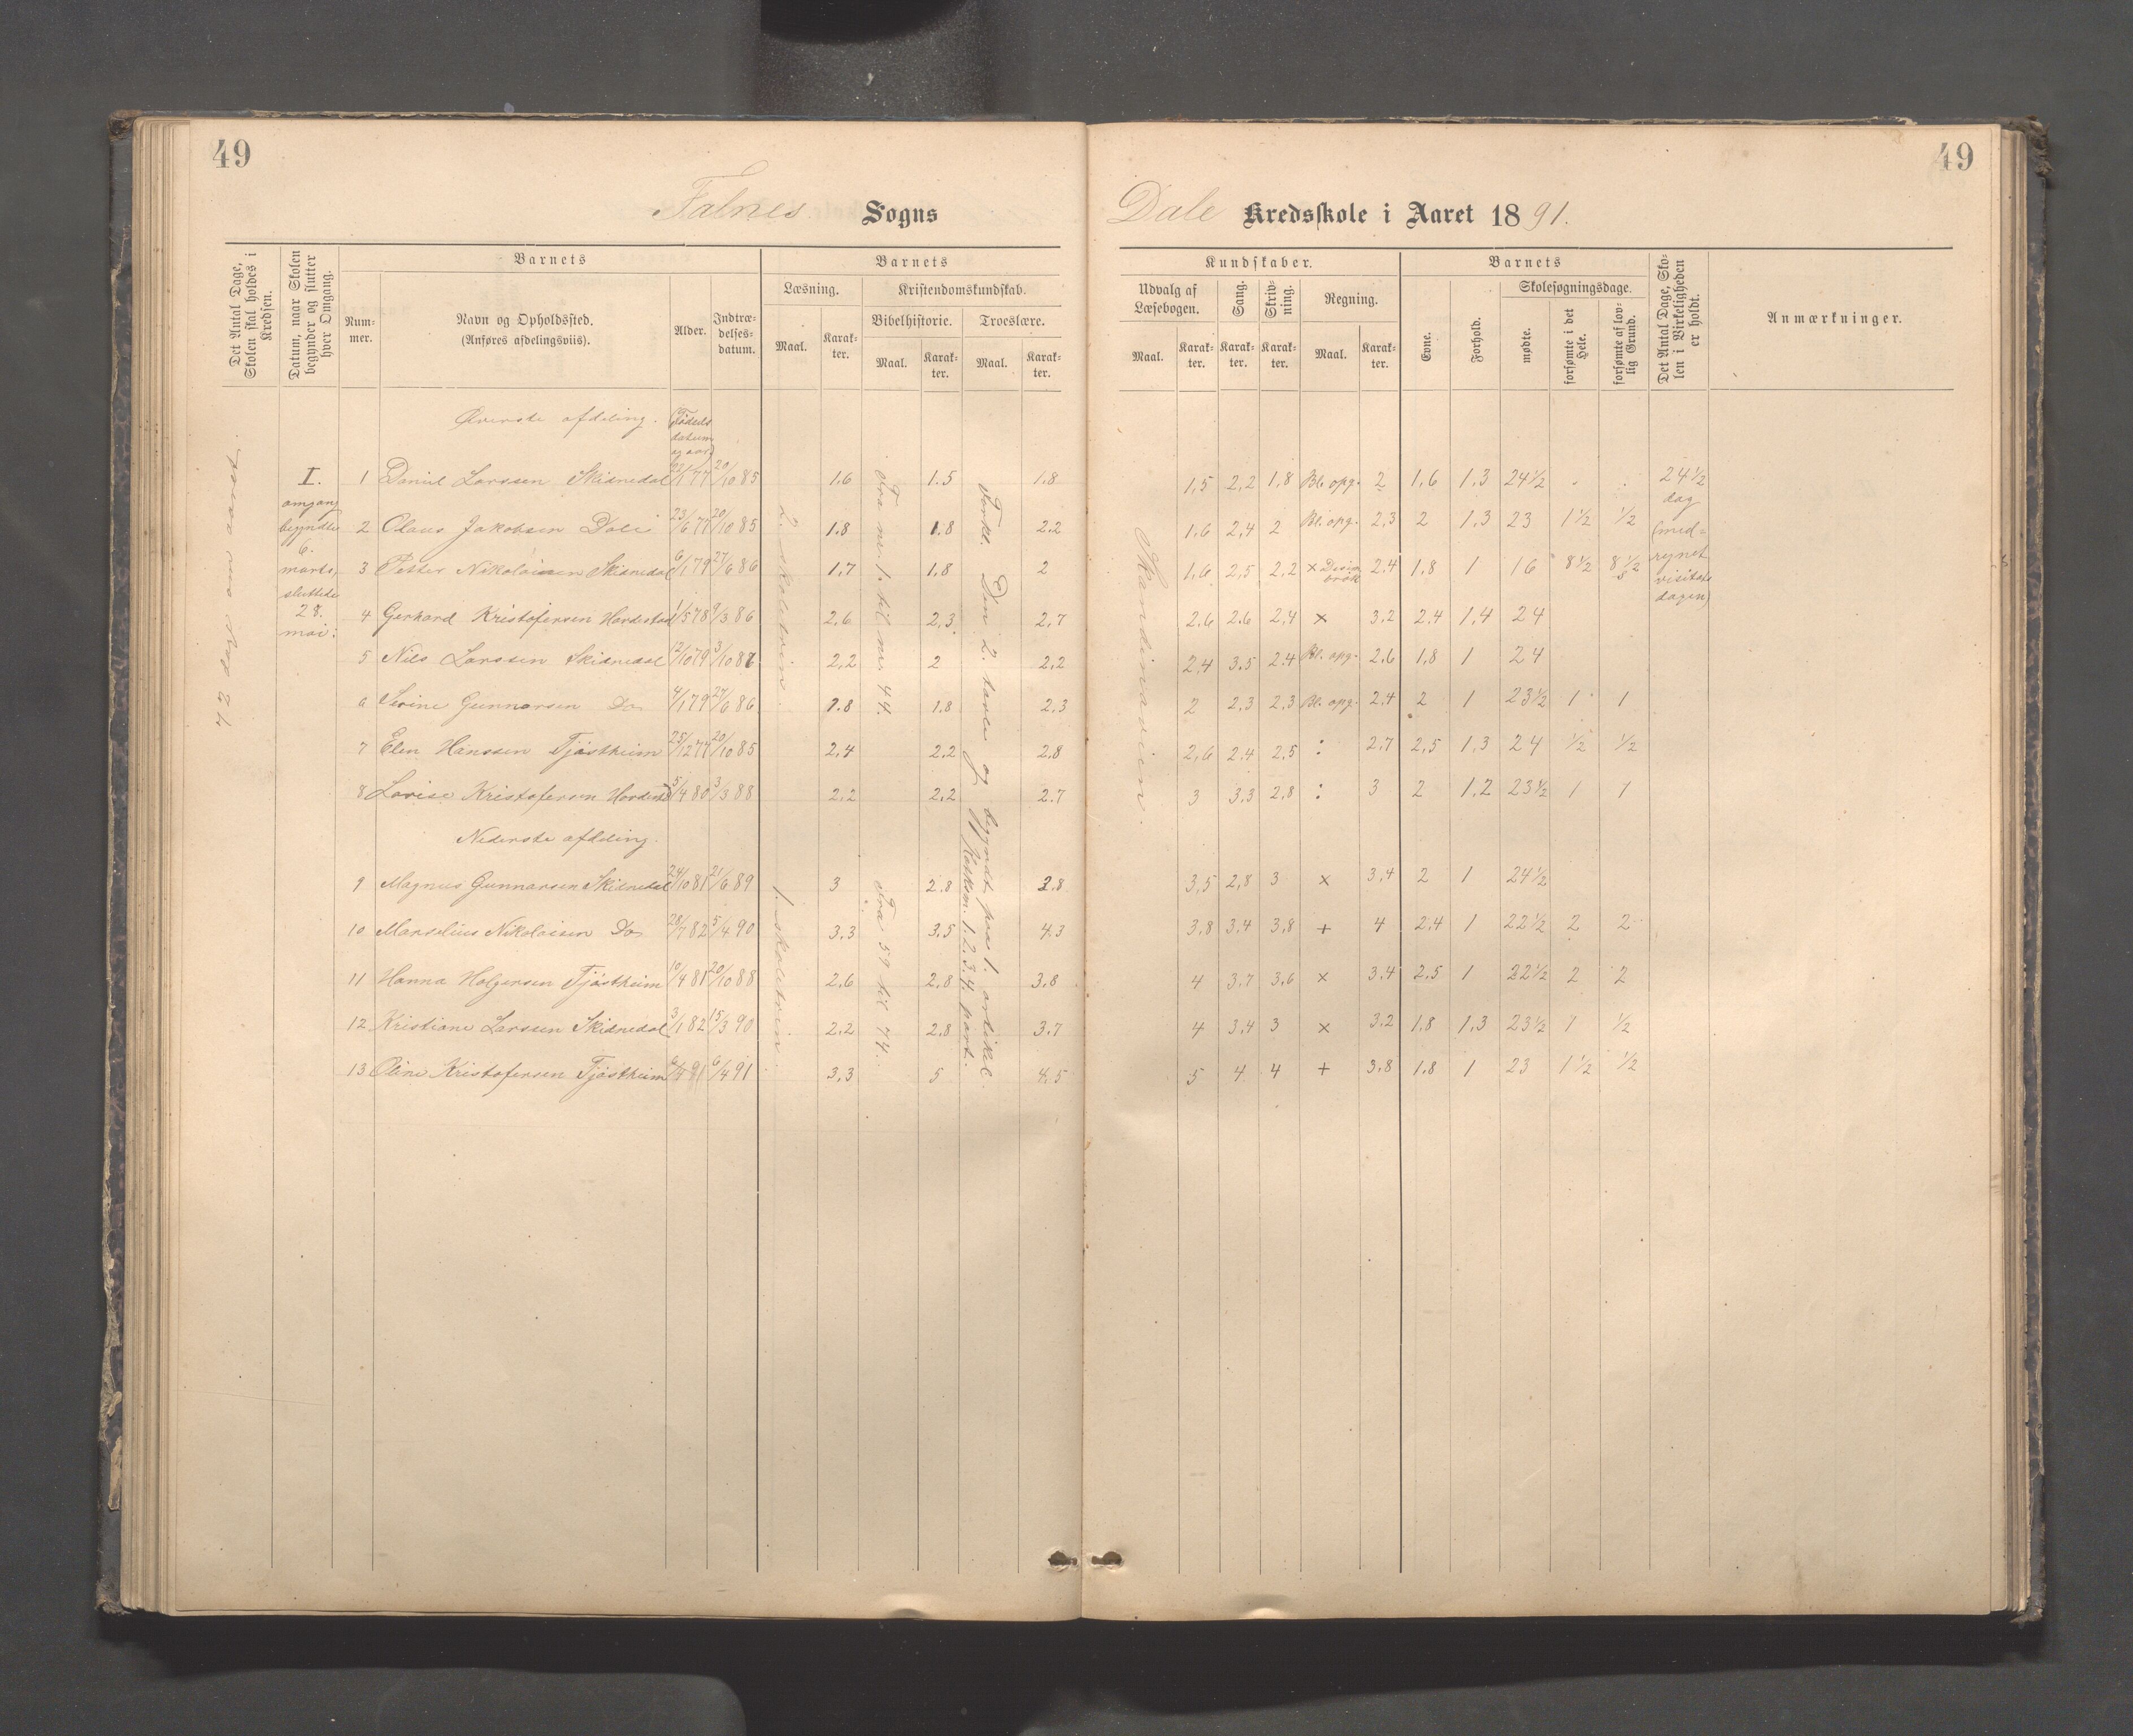 49
49
Falnes Sogns
Dale Kredsskole i Aaret 1891.
Det Antal Dage, Skolen skal holdes i Kredsen.
Datum, naar Skolen begynder og slutter hver Omgang.
Barnets
Num-mer.
Navn og Opholdssted.
(Anføres afdelingsviis).
Alder.
Indtræ-delses-datum.
Barnets
Læsning.
Kristendomskundskab.
Bibelhistorie.
Troeslære.
Maal.
Karak-ter.
Maal.
Karak-ter.
Maal.
Karak-ter.
Kundskaber.
Udvalg af Læsebogen.
Sang.
Skriv-ning.
Regning.
Maal.
Karak-ter.
Karak-ter.
Karak-ter.
Maal.
Karak-ter.
Barnets
Evne.
Forhold.
Skolesøgningsdage.
mødte.
forsømte i det Hele.
forsømte af lov-lig Grund.
Det Antal Dage, Sko-len i Virkeligheden er holdt.
Anmærkninger.
72 dage om aaret.
I. omgang begyndte 6. marts, sluttede 28. mai.
Øverste afdeling.
(Fødselsdatum og aar)
1 Daniel Larssen Skidnedal 77 20/10 85 1.6 1.5 1.8 1,5 2,2 1,8 Bl. opg. 2 1,6 1,3 24½
2 Olaus Jakobsen Dale 23/6 77 20/10 85 1.8 1.8 2.2 1.6 2,4 2 Bl. opg. 2,3 2 1,3 23 1½ ½
3 Petter Nikolaisen Skidnedal 6/1 79 27/6 86 1,7 1,8 2 1,6 2,5 2,2 × 2.4 1,8 1 16 8½ 8½
4 Gerhard Kristofersen Hordestad 1/5 78 9/3 86 2,6 2,3 2,7 2.6 2.6 2,4 × 3,2 2,4 1,4 24
5 Nils Larssen Skidnedal 12/10 79 3/10 87 2,2 2 2,2 2.4 3.5 2.4 Bl. opg. 2.6 1,8 1 24
6 Serine Gunnarsen Do 4/1 79 27/6 86 1.8 1.8 2,3 2 2,3 2,3 Bl. opg. 2,4 2 1 23½ 1 1
7 Elen Hanssen Tjøstheim 25/12 77 20/10 85 2,4 2.2 2.8 2,6 2.4 2,5 : 2,7 2,5 1,3 24 ½ ½
8 Lovise Kristofersen Hordestad 5/4 80 3/3 88 2,2 2,2 2.7 3 3,3 2,8 : 3 2 1,2 23½ 1 1
Nederste afdeling.
9 Magnus Gunnarsen Skidnedal 24/10 81 21/6 89 3 2.8 2.8 3,5 2,8 3 × 3,4 2 1 24½
10 Marselius Nikolaisen Do 28/7 82 5/4 90 3,3 3,5 4.3 3,8 3,4 3,8 + 4 2,4 1 22½ 2 2
11 Hanna Holgersen Tjøstheim 10/4 81 20/10 88 2,6 2,8 3,8 4 3,7 3,6 × 3,4 2,5 1 22½ 2 2
12 Kristiane Larssen Skidnedal 3/1 82 15/3 90 2,2 2,8 3,7 4 3,4 3 × 3,2 1,8 1,3 23½ 1 ½
13 Oline Kristofersen Tjøstheim 6/4 91 3,3 5 4,5 5 4 4 + 3,8 1,8 1 23 1½ ½
2. skoletrin.
1. skoletrin.
Fra nr. 1. til nr. 44.
Fra 59 til 74.
Forkl. Den 2. tavle og begyndt paa 1. artikel.
1. 2. 3. 4. part.
Skandinavien.
24½ dag (med-regnet visitats dagen)